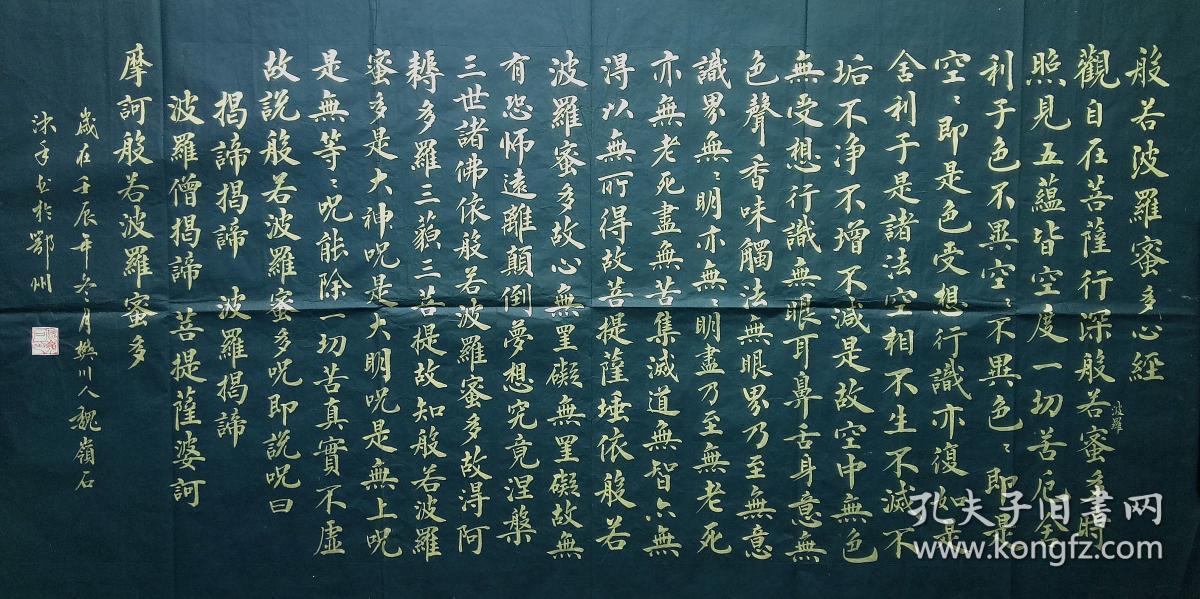 般若波羅蜜多心經
觀自在菩薩行深般若蜜多時
波羅
照見五蘊皆空度一切苦厄舍
利子色不異空〻不異色〻即是
空〻即是色受想行識亦復如是
舍利子是諸法空相不生不滅不
垢不淨不增不減是故空中無色
無受想行識無眼耳鼻舌身意無
色聲香味觸法無眼界乃至無意
識界無〻明亦無〻明盡乃至無老死
亦無老死盡無苦集滅道無智亦無
得以無所得故菩提薩埵依般若
波羅蜜多故心無罣礙無罣礙故無
有恐怖遠離顛倒夢想究竟涅槃
三世諸佛依般若波羅蜜多故得阿
耨多羅三藐三菩提故知般若波羅
蜜多是大神呪是大明呪是無上呪
是無等〻呪能除一切苦真實不虛
故說般若波羅蜜多呪即說呪曰
揭諦揭諦 波羅揭諦
波羅僧揭諦 菩提薩婆訶
摩訶般若波羅蜜多
歲在壬辰年冬月樊川人魏嶺石
沐手書於鄂州
孔夫子旧书网
www.kongfz.com